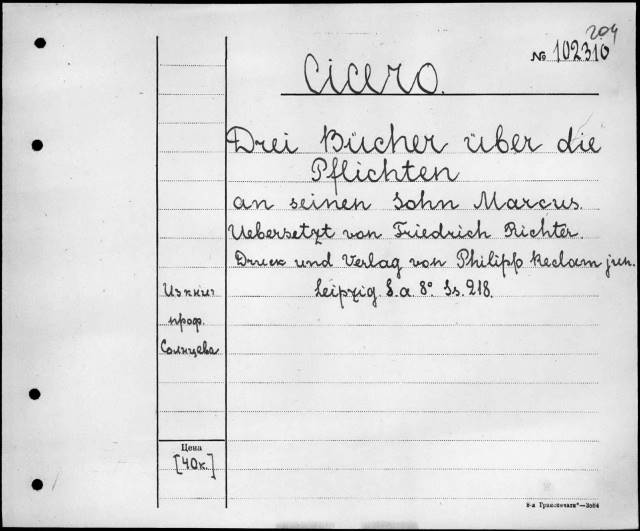 204
№ 102310
Cicero.
Drei Bücher über die
Pflichten
an seinen Sohn Marcus.
Uebersetzt von Friedrich Richter.
Druck und Verlag von Philipp Reclam jun.
Leipzig. S.a. 8°. Ss. 218.
Из книг
проф.
Солнцева
Цена
[40к.]